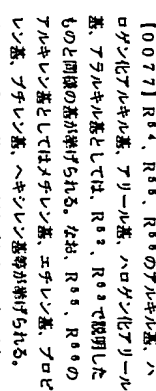 【0077】R⁶⁴、R⁶⁵、R⁶⁶のアルキル基、ハ
ロゲン化アルキル基、アリール基、ハロゲン化アリール
基、アラルキル基としては、R⁶²、R⁶³で説明した
ものと同様の基が挙げられる。なお、R⁶⁵、R⁶⁶の
アルキレン基としてはメチレン基、エチレン基、プロピ
レン基、ブチレン基、ヘキシレン基等が挙げられる。